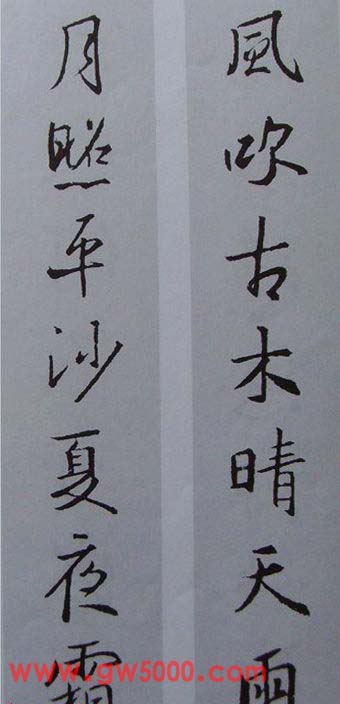 風吹古木晴天雨
月照平沙夏夜霜
www.gw5000.com